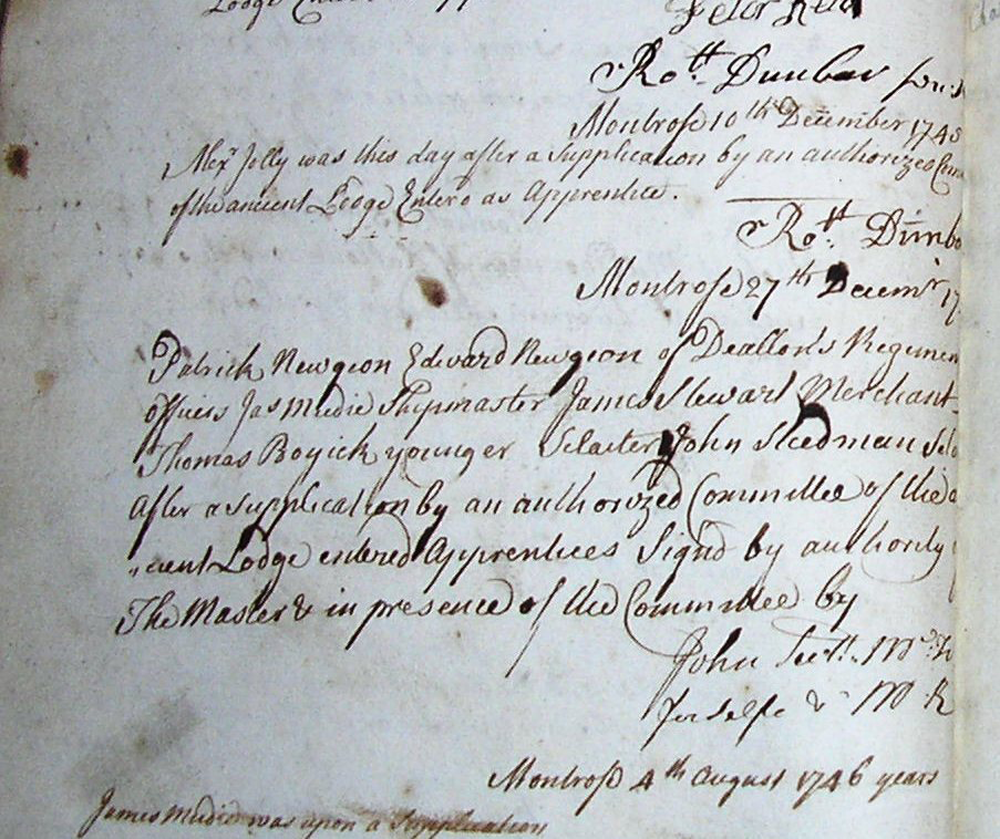 Lodge
Peter Reid
Rott. Dunbar
Montrose 10th December 174
Alexr Jolly was this day after a Supplication by an authorized
of the ancient Lodge Enterd as Apprentice.
Rott. Dunba
Montrose 27th Decemr 17
Patrick Newgion Edward Newgion of Regimen
officers Jas Mudie Shipmaster James Stewart Merchant
Thomas Boyick younger Sclaiter John Studman Scla
After a Supplication by an authorized Committee of the a
cient Lodge entered Apprentices Signd by authority
The Master & in presence of the Committee by
John
for selfe & M R
Montrose 4th August 1746 years
James Mudie was upon a Supplication